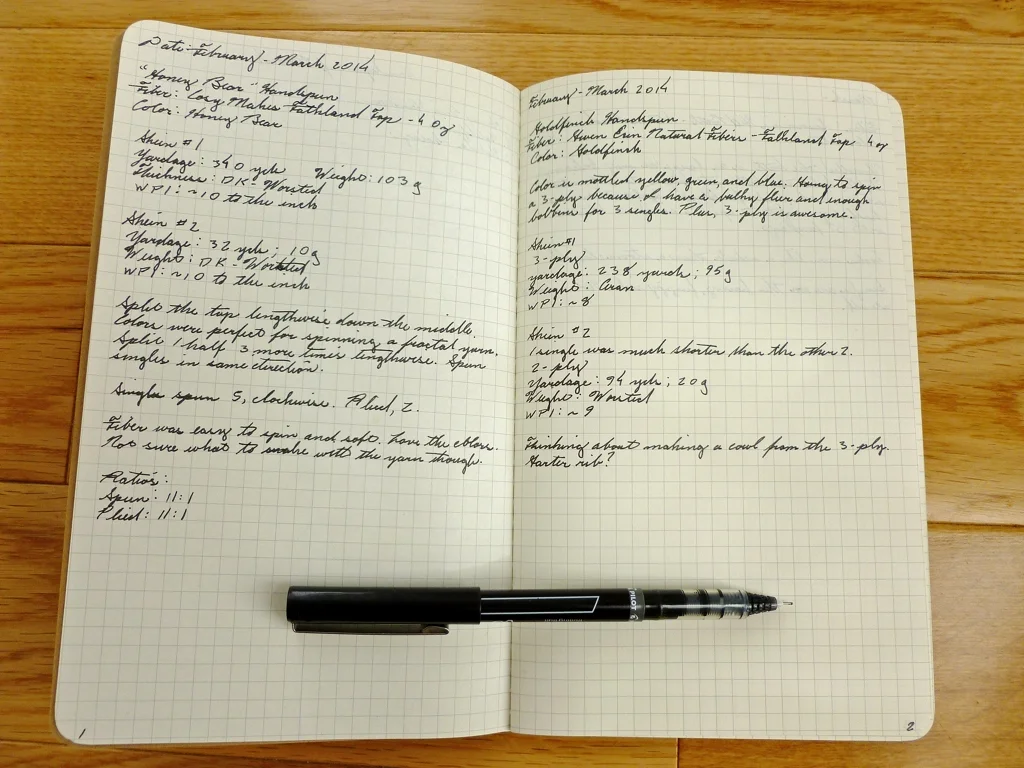 Date: February - March 2014
"Honey Bear" Handspun
Fiber: Cosy Makes Falkland Top - 4 oz
Color: Honey Bear
Skein #1
Yardage: 340 yds Weight: 103g
Thickness: DK - Worsted
WPI: ~10 to the inch
Skein #2
Yardage: 32 yds; 10g
Weight: DK - Worsted
WPI: ~10 to the inch
Split the top lengthwise down the middle.
Colors were perfect for spinning a fractal yarn.
Split 1 half 3 more times lengthwise. Spun
singles in same direction.
Singles spun S, clockwise. Plied, Z.
Fiber was easy to spin and soft. Love the colors.
Not sure what to make with the yarn though.
Ratios:
Spun: 11:1
Plied: 11:1
1
February - March 2014
Goldfinch Handspun
Fiber: Gwen Erin Natural Fibers - Falkland Top 4 oz
Color: Goldfinch
Color is mottled yellow, green, and blue. Going to spin
a 3-ply because I have a bulky flier and enough
bobbins for 3 singles. Plus, 3-ply is awesome.
Skein #1
3-ply
yardage: 238 yards; 95g
Weight: Aran
WPI: ~8
Skein #2
1 single was much shorter than the other 2.
2-ply
Yardage: 94 yds; 20g
Weight: Worsted
WPI: ~9
Thinking about making a cowl from the 3-ply.
Garter rib?
2
PILOT